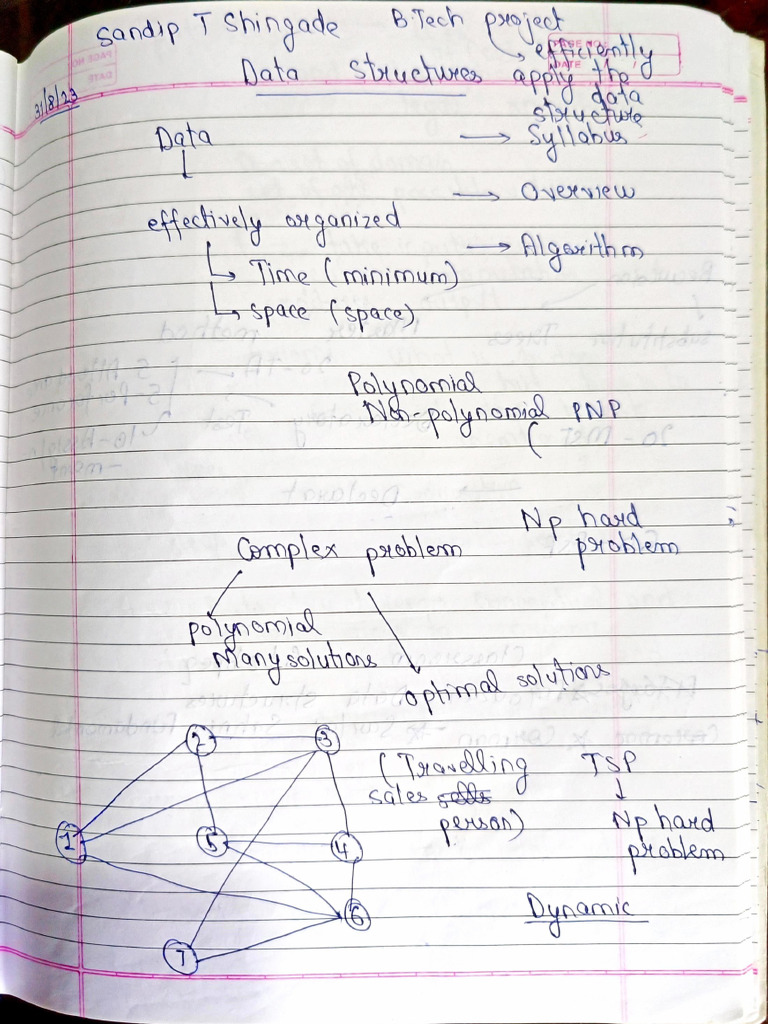 Sandip T Shingade B.Tech project
efficiently
Data structures apply the
data
structure
31/8/23
Data → Syllabus
→ Overview
effectively organized
→ Algorithm
Time (minimum)
space (space)
Polynomial
Non-polynomial PNP
(
Np hard
problem
Complex problem
polynomial
Many solutions
optimal solutions
2 3
(Travelling TSP
sales
person)
1 5 4
Np hard
problem
6
Dynamic
7
PAGE NO.
DATE